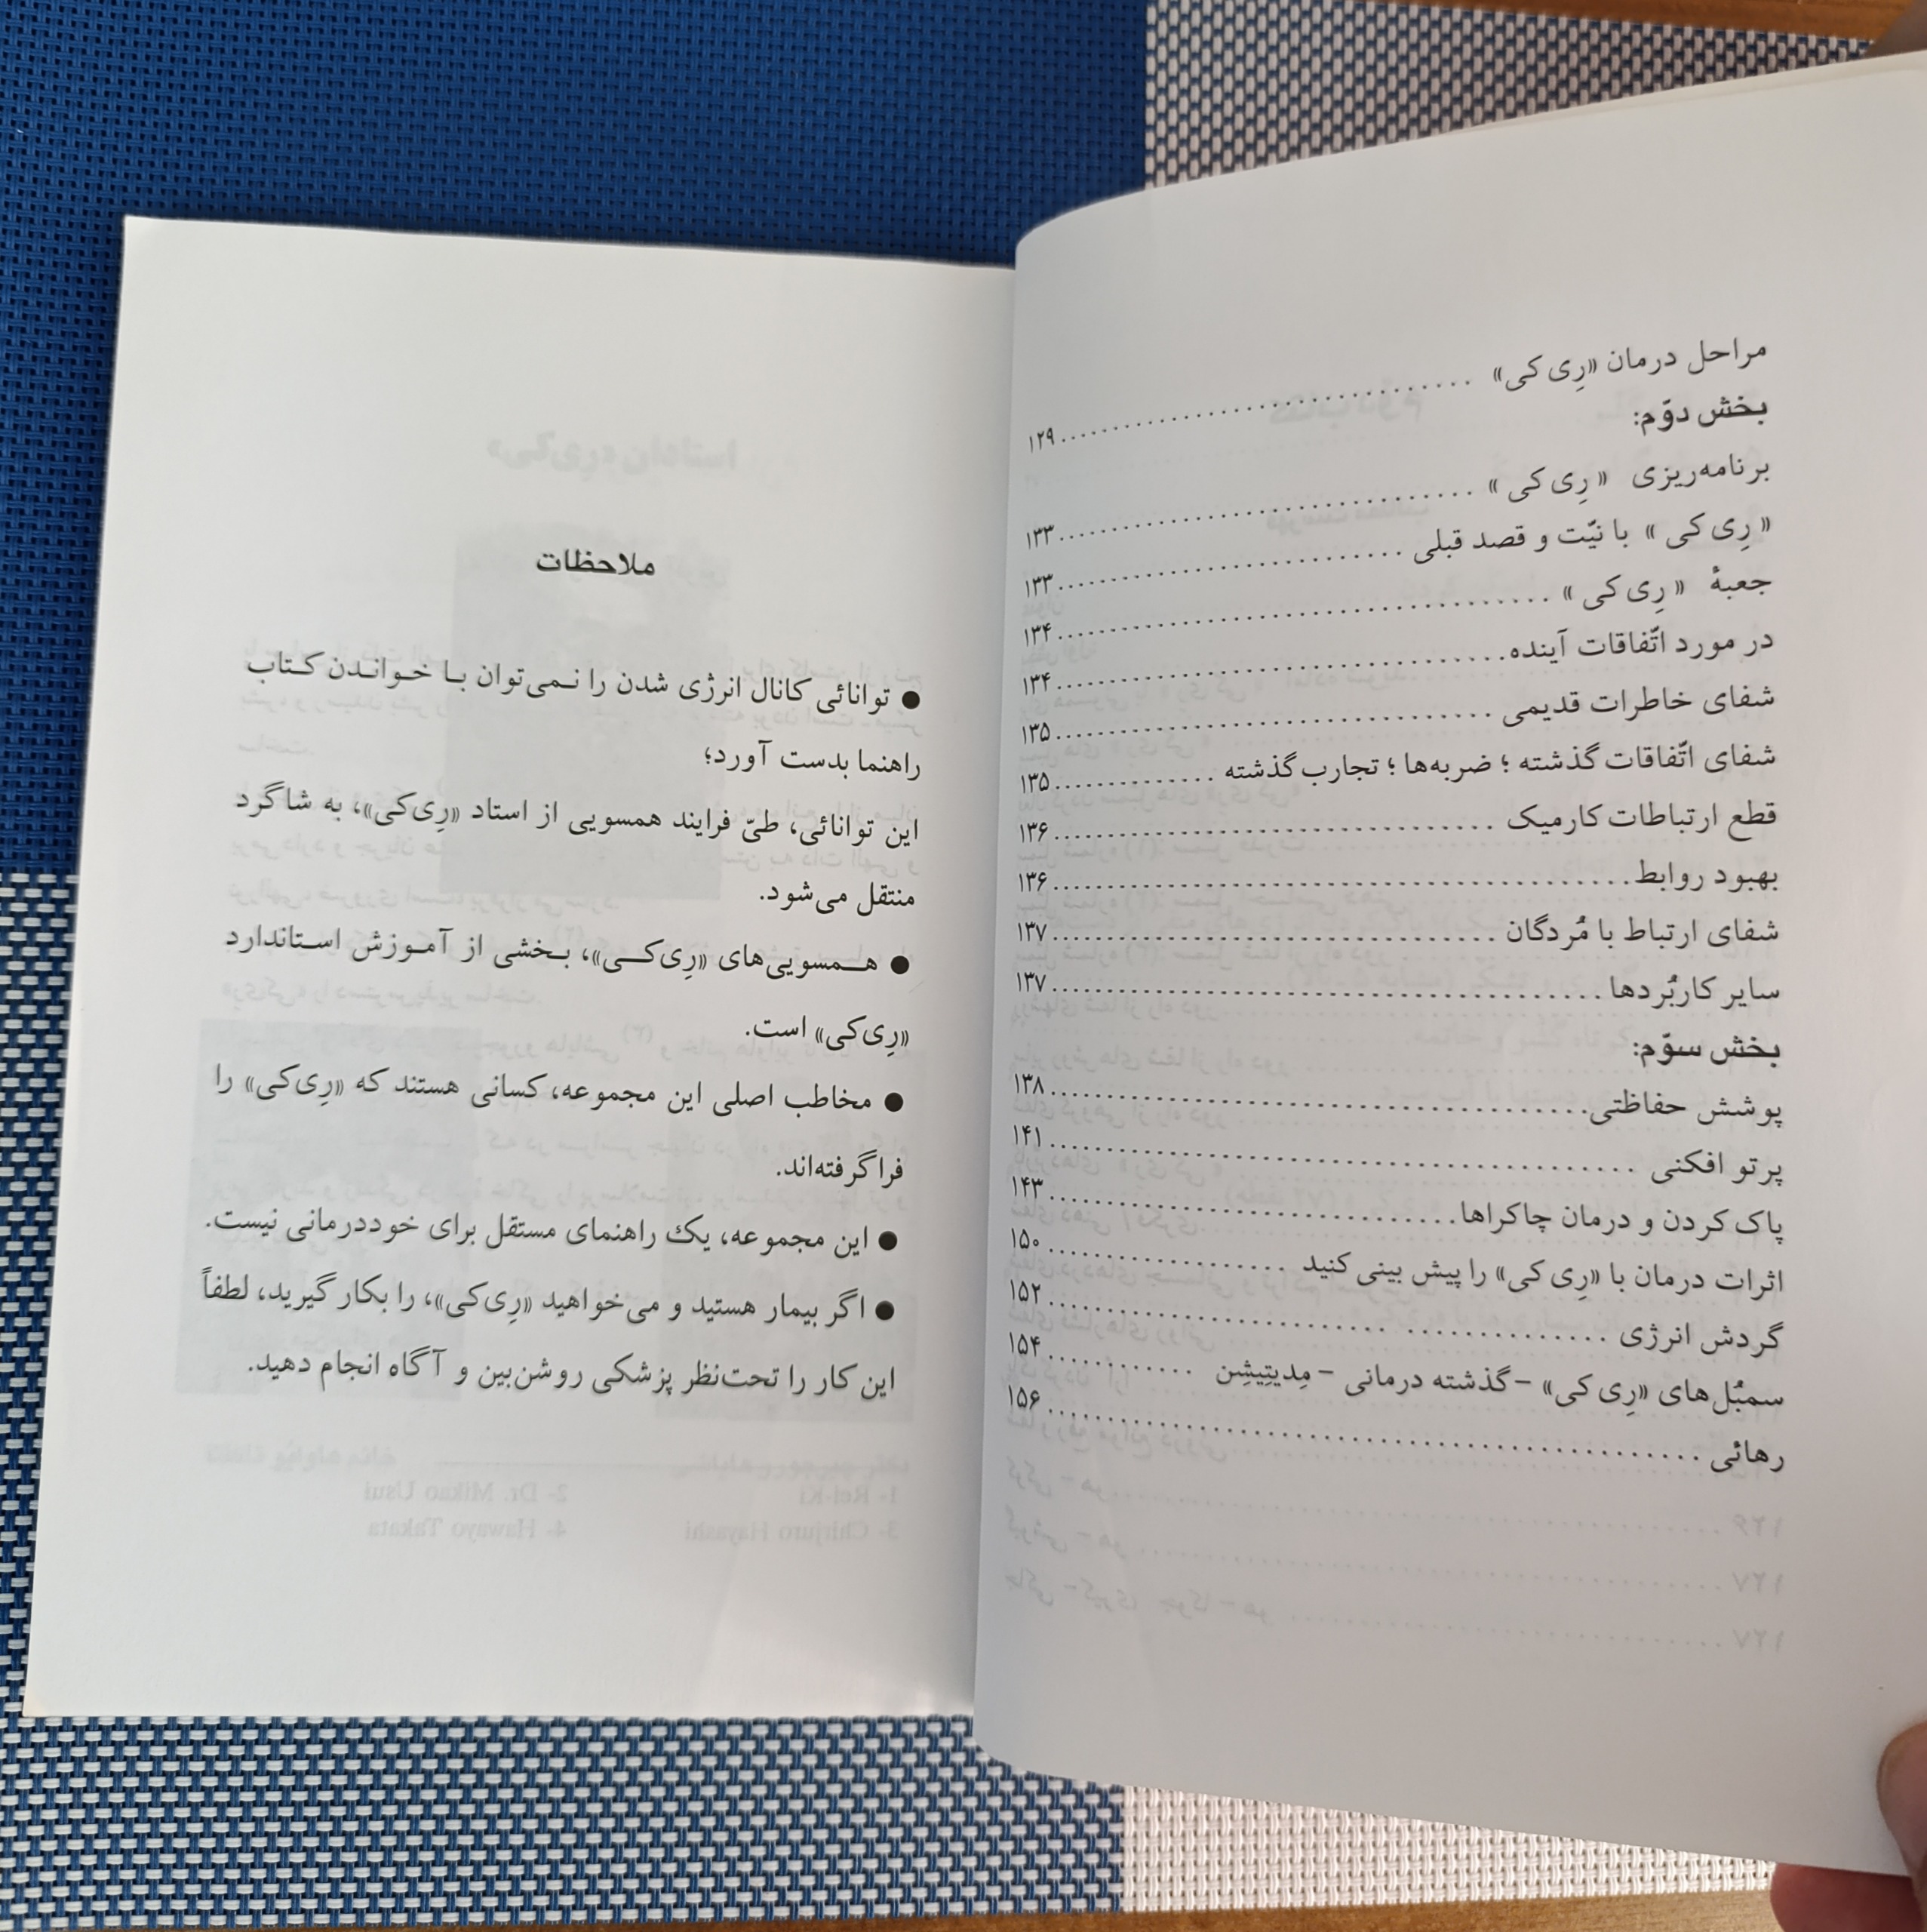 مراحل درمان «رِی کی» ........ ۱۲۹
بخش دوّم:
برنامه‌ریزی « رِی کی » ........ ۱۳۳
« رِی کی » با نیّت و قصد قبلی ........ ۱۳۳
جعبهٔ « رِی کی » ........ ۱۳۴
در مورد اتّفاقات آینده ........ ۱۳۴
شفای خاطرات قدیمی ........ ۱۳۵
شفای اتّفاقات گذشته ؛ ضربه‌ها ؛ تجارب گذشته ........ ۱۳۵
قطع ارتباطات کارمیک ........ ۱۳۶
بهبود روابط ........ ۱۳۶
شفای ارتباط با مُردگان ........ ۱۳۷
سایر کاربُردها ........ ۱۳۷
بخش سوّم:
پوشش حفاظتی ........ ۱۳۸
پرتو افکنی ........ ۱۴۱
پاک کردن و درمان چاکراها ........ ۱۴۳
اثرات درمان با «رِی کی» را پیش بینی کنید ........ ۱۵۰
گردش انرژی ........ ۱۵۲
سمبُل‌های «رِی کی» – گذشته درمانی – مِدیتِیشِن ........ ۱۵۴
رهائی ........ ۱۵۶
ملاحظات
● توانائی کانال انرژی شدن را نـمی‌توان بـا خـوانـدن کـتاب
راهنما بدست آورد؛
این توانائی، طیّ فرایند همسویی از استاد «رِی‌کی»، به شاگرد
منتقل می‌شود.
● هـمسویی‌های «رِی‌کـی»، بـخشی از آمـوزش اسـتاندارد
«رِی‌کی» است.
● مخاطب اصلی این مجموعه، کسانی هستند که «رِی‌کی» را
فراگرفته‌اند.
● این مجموعه، یک راهنمای مستقل برای خوددرمانی نیست.
● اگر بیمار هستید و می‌خواهید «رِی‌کی»، را بکار گیرید، لطفاً
این کار را تحت‌نظر پزشکی روشن‌بین و آگاه انجام دهید.